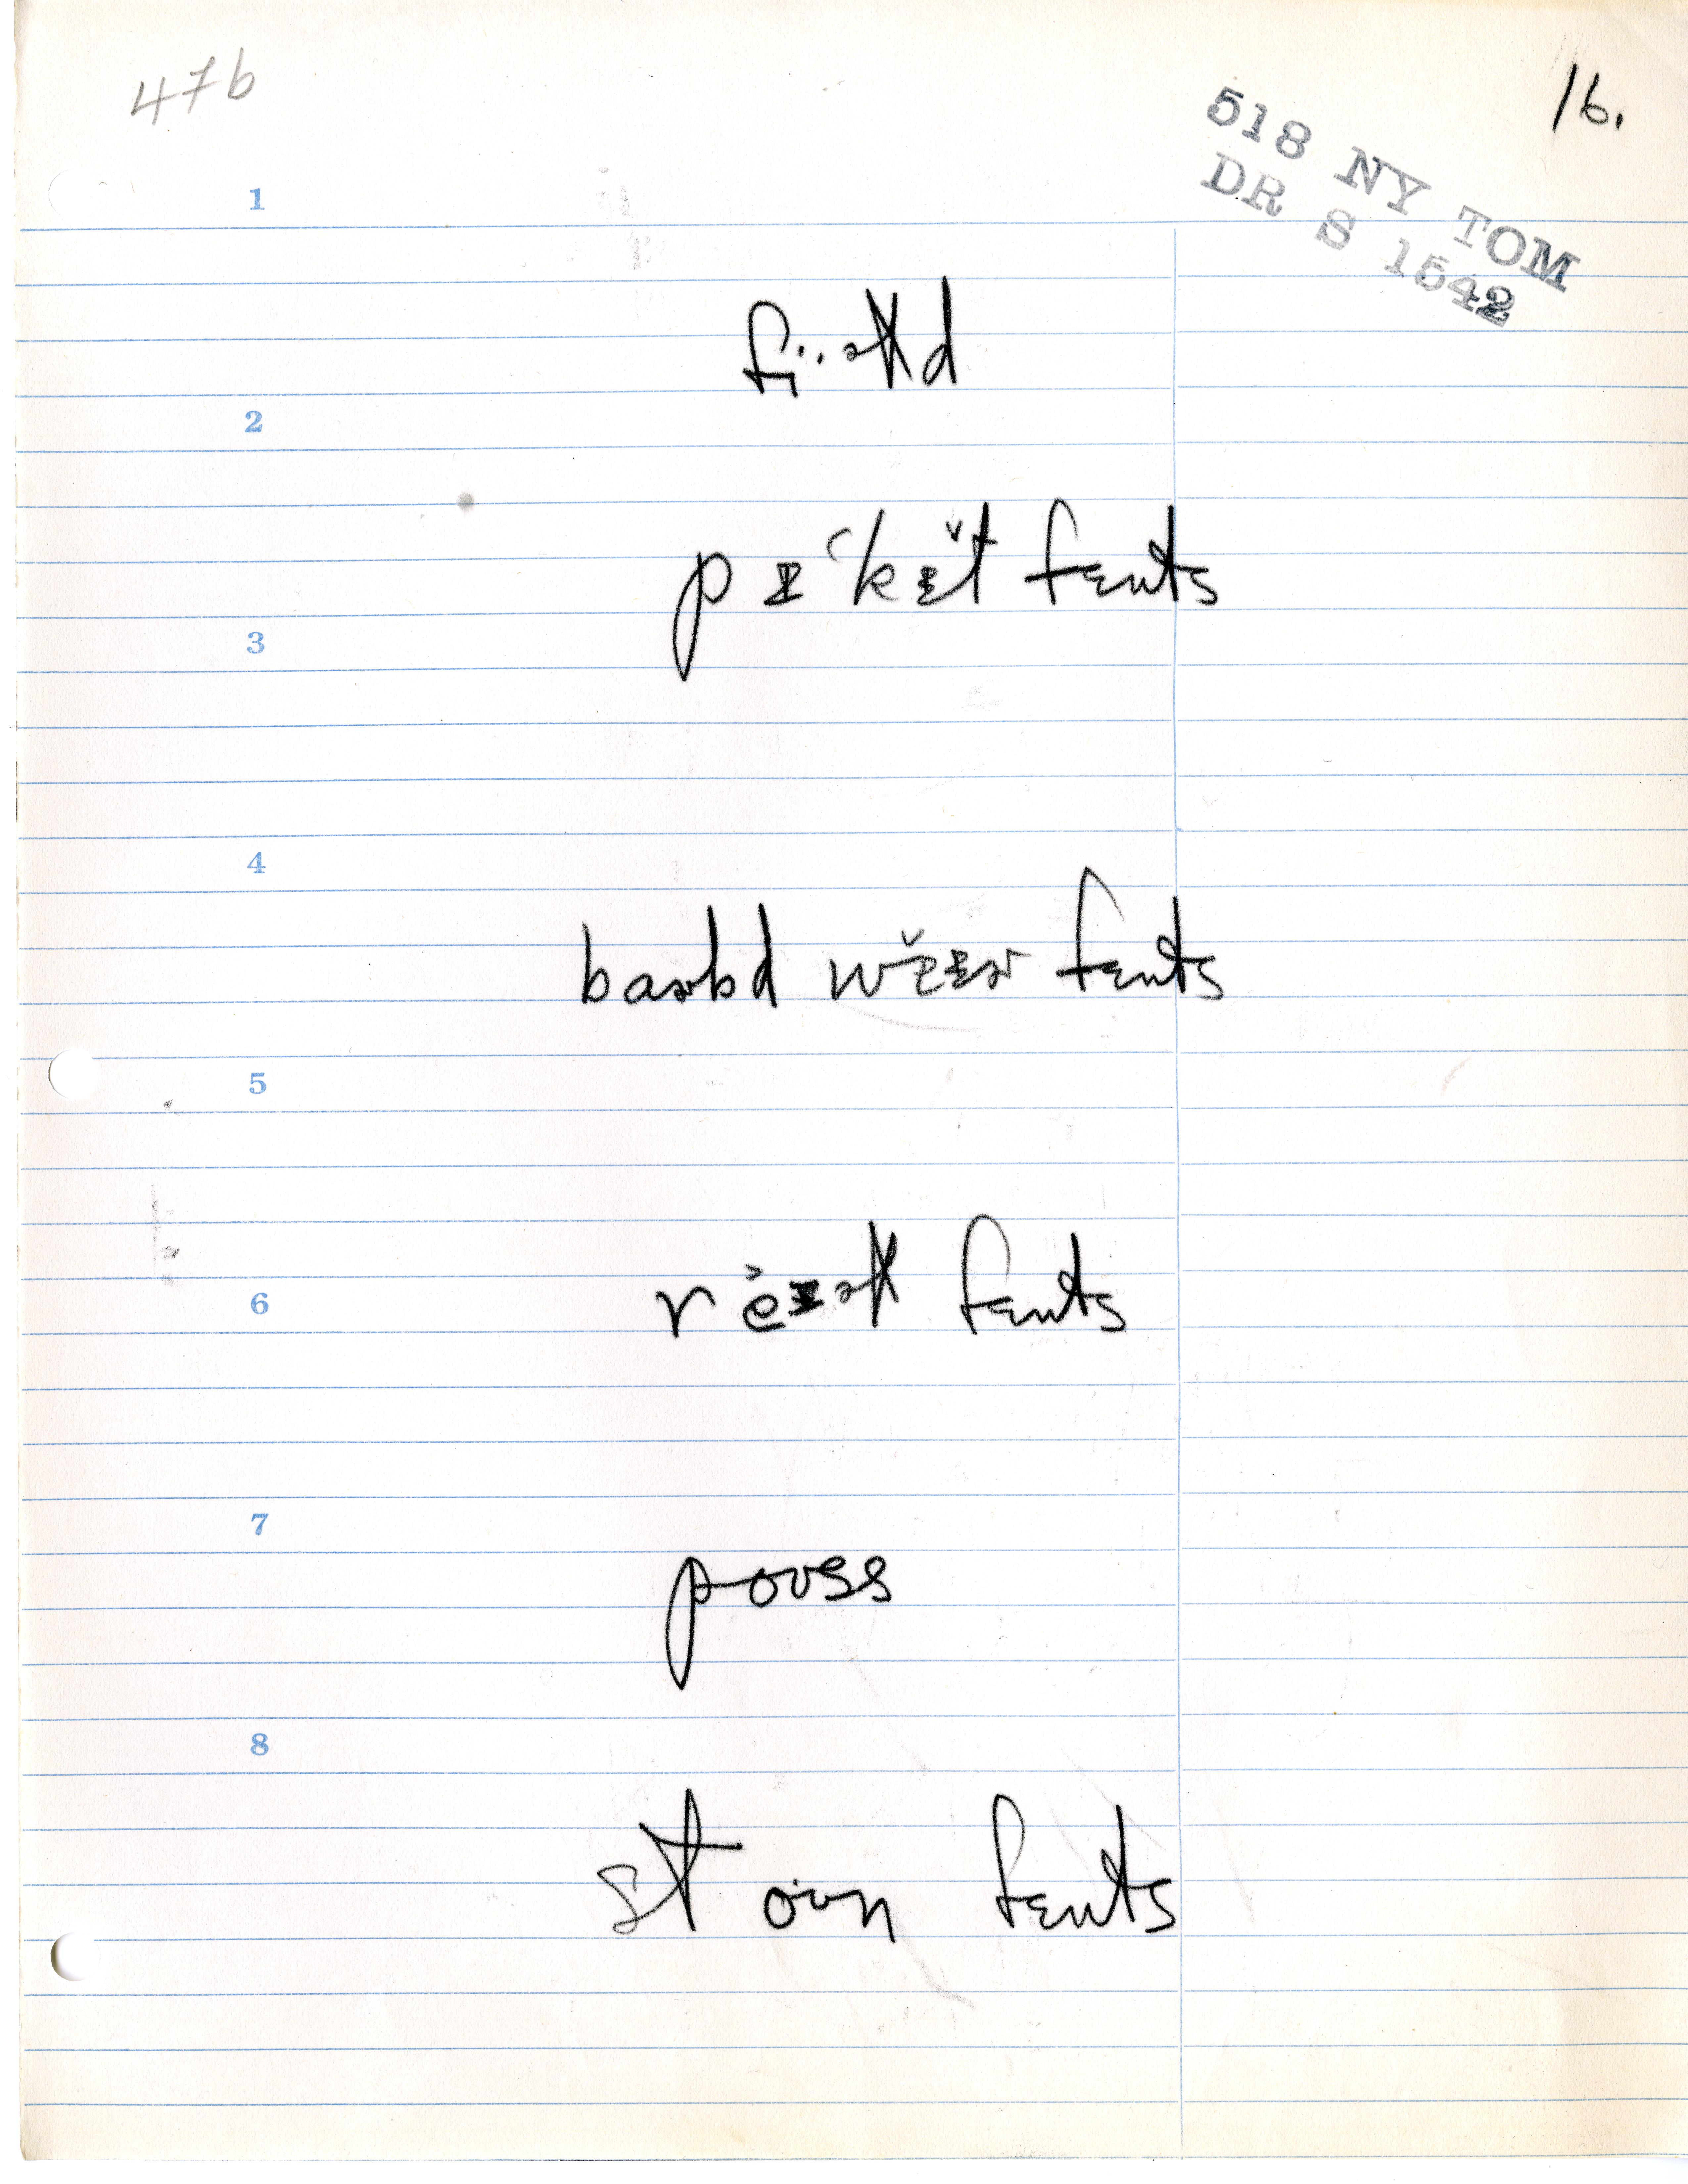 47b
16.
518 NY TOM
DR S 1542
1
fi··əłd
2
pɪ́kɪ̆t fɛnts
3
4
baɚbd wĕɪɚ fɛnts
5
6
r ĕɪəł fɛnts
7
poʊss
8
st oʊn fɛnts